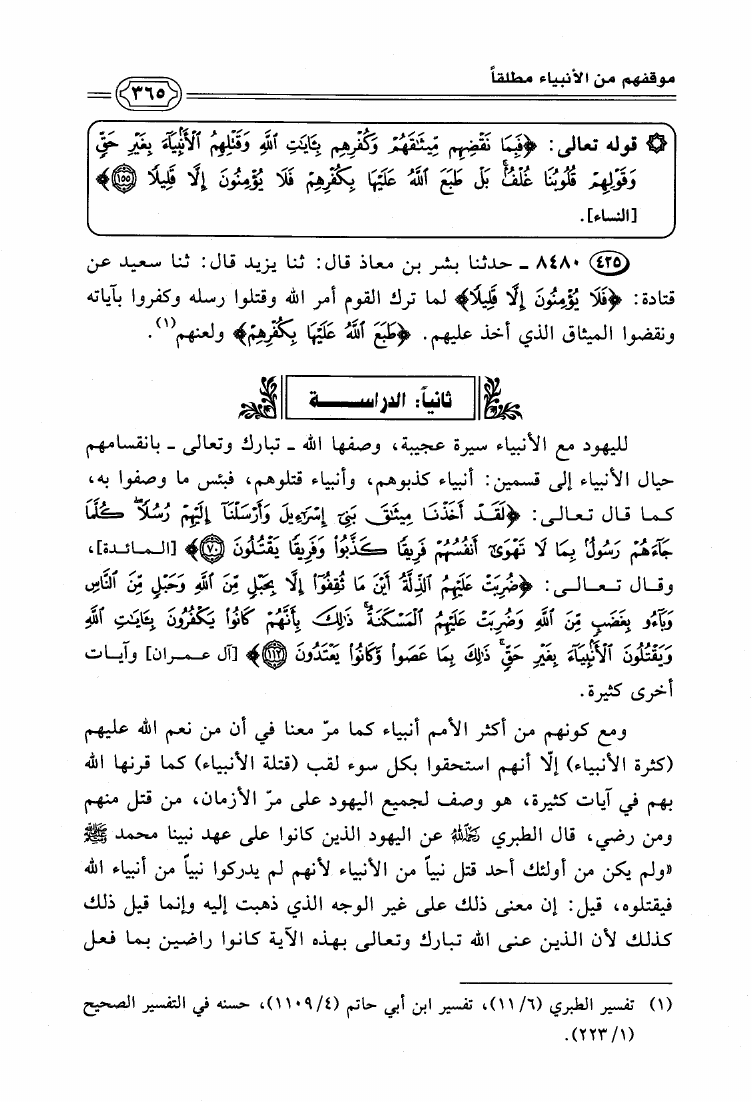 موقفهم من الأنبياء مطلقاً
٣٦٥
۞ قوله تعالى: ﴿فَبِمَا نَقْضِهِم مِّيثَٰقَهُمْ وَكُفْرِهِم بِـَٔايَٰتِ ٱللَّهِ وَقَتْلِهِمُ ٱلْأَنۢبِيَآءَ بِغَيْرِ حَقٍّ
وَقَوْلِهِمْ قُلُوبُنَا غُلْفٌۢ بَلْ طَبَعَ ٱللَّهُ عَلَيْهَا بِكُفْرِهِمْ فَلَا يُؤْمِنُونَ إِلَّا قَلِيلًا ١٥٥﴾
[النساء].
٤٢٥ ٨٤٨٠ ـ حدثنا بشر بن معاذ قال: ثنا يزيد قال: ثنا سعيد عن
قتادة: ﴿فَلَا يُؤْمِنُونَ إِلَّا قَلِيلًا﴾ لما ترك القوم أمر الله وقتلوا رسله وكفروا بآياته
ونقضوا الميثاق الذي أخذ عليهم. ﴿طَبَعَ ٱللَّهُ عَلَيْهَا بِكُفْرِهِمْ﴾ ولعنهم(١).
ثانياً: الدراســـــة
لليهود مع الأنبياء سيرة عجيبة، وصفها الله ـ تبارك وتعالى ـ بانقسامهم
حيال الأنبياء إلى قسمين: أنبياء كذبوهم، وأنبياء قتلوهم، فبئس ما وصفوا به،
كما قال تعالى: ﴿لَقَدْ أَخَذْنَا مِيثَٰقَ بَنِىٓ إِسْرَٰٓءِيلَ وَأَرْسَلْنَآ إِلَيْهِمْ رُسُلًا ۖ كُلَّمَا
جَآءَهُمْ رَسُولٌۢ بِمَا لَا تَهْوَىٰٓ أَنفُسُهُمْ فَرِيقًا كَذَّبُوا۟ وَفَرِيقًا يَقْتُلُونَ ٧٠﴾ [المائدة]،
وقال تعالى: ﴿ضُرِبَتْ عَلَيْهِمُ ٱلذِّلَّةُ أَيْنَ مَا ثُقِفُوٓا۟ إِلَّا بِحَبْلٍ مِّنَ ٱللَّهِ وَحَبْلٍ مِّنَ ٱلنَّاسِ
وَبَآءُو بِغَضَبٍ مِّنَ ٱللَّهِ وَضُرِبَتْ عَلَيْهِمُ ٱلْمَسْكَنَةُ ۚ ذَٰلِكَ بِأَنَّهُمْ كَانُوا۟ يَكْفُرُونَ بِـَٔايَٰتِ ٱللَّهِ
وَيَقْتُلُونَ ٱلْأَنۢبِيَآءَ بِغَيْرِ حَقٍّ ۚ ذَٰلِكَ بِمَا عَصَوا۟ وَّكَانُوا۟ يَعْتَدُونَ ١١٢﴾ [آل عمران] وآيات
أخرى كثيرة.
ومع كونهم من أكثر الأمم أنبياء كما مرّ معنا في أن من نعم الله عليهم
(كثرة الأنبياء) إلّا أنهم استحقوا بكل سوء لقب (قتلة الأنبياء) كما قرنها الله
بهم في آيات كثيرة، هو وصف لجميع اليهود على مرّ الأزمان، من قتل منهم
ومن رضي، قال الطبري رحمه الله عن اليهود الذين كانوا على عهد نبينا محمد ﷺ
«ولم يكن من أولئك أحد قتل نبياً من الأنبياء لأنهم لم يدركوا نبياً من أنبياء الله
فيقتلوه، قيل: إن معنى ذلك على غير الوجه الذي ذهبت إليه وإنما قيل ذلك
كذلك لأن الذين عنى الله تبارك وتعالى بهذه الآية كانوا راضين بما فعل
(١) تفسير الطبري (١١/٦)، تفسير ابن أبي حاتم (١١٠٩/٤)، حسنه في التفسير الصحيح
(٢٢٣/١).